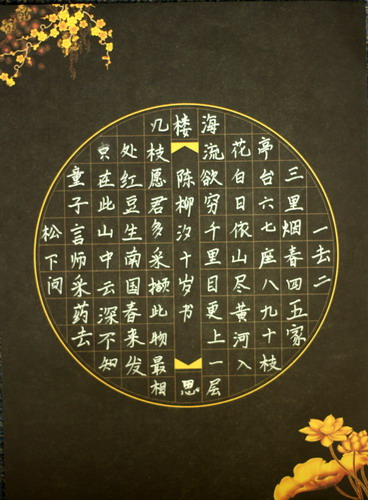 一去二
三里烟春四五家
亭台六七座八九十枝
花白日依山尽黄河入
海流欲穷千里目更上一层
楼
陈柳汐十岁书
思
几枝愿君多采撷此物最相
处红豆生南国春来发
只在此山中云深不知
童子言师采药去
松下问